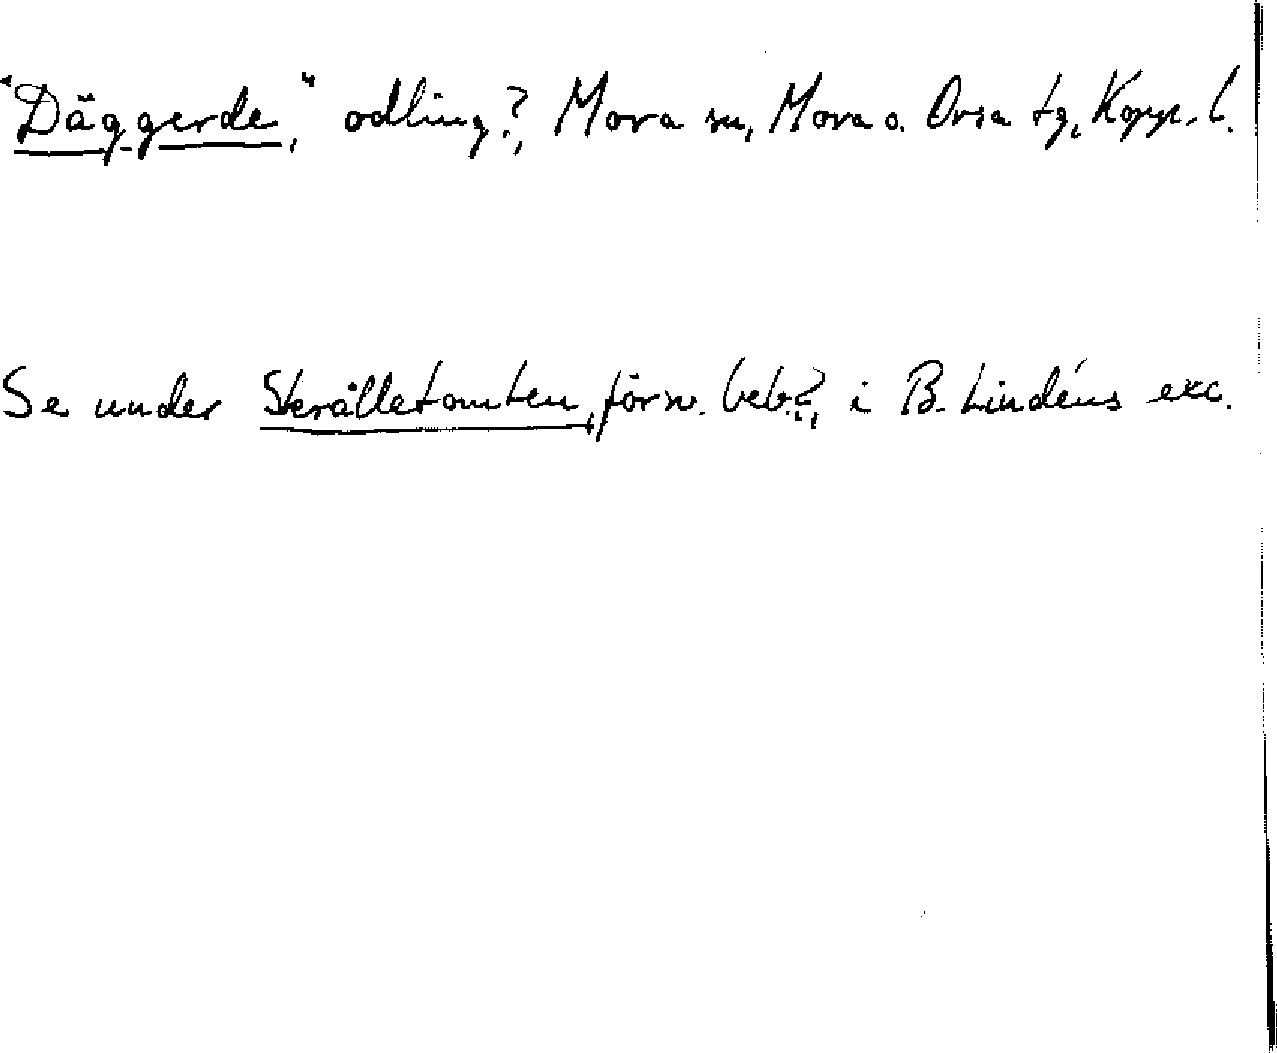 "Däggerde," odling?, Mora sn, Mora o. Orsa tg, Kopp. l.
Se under Skrålletomten, försv. beb.?, i B. Lindéns exc.